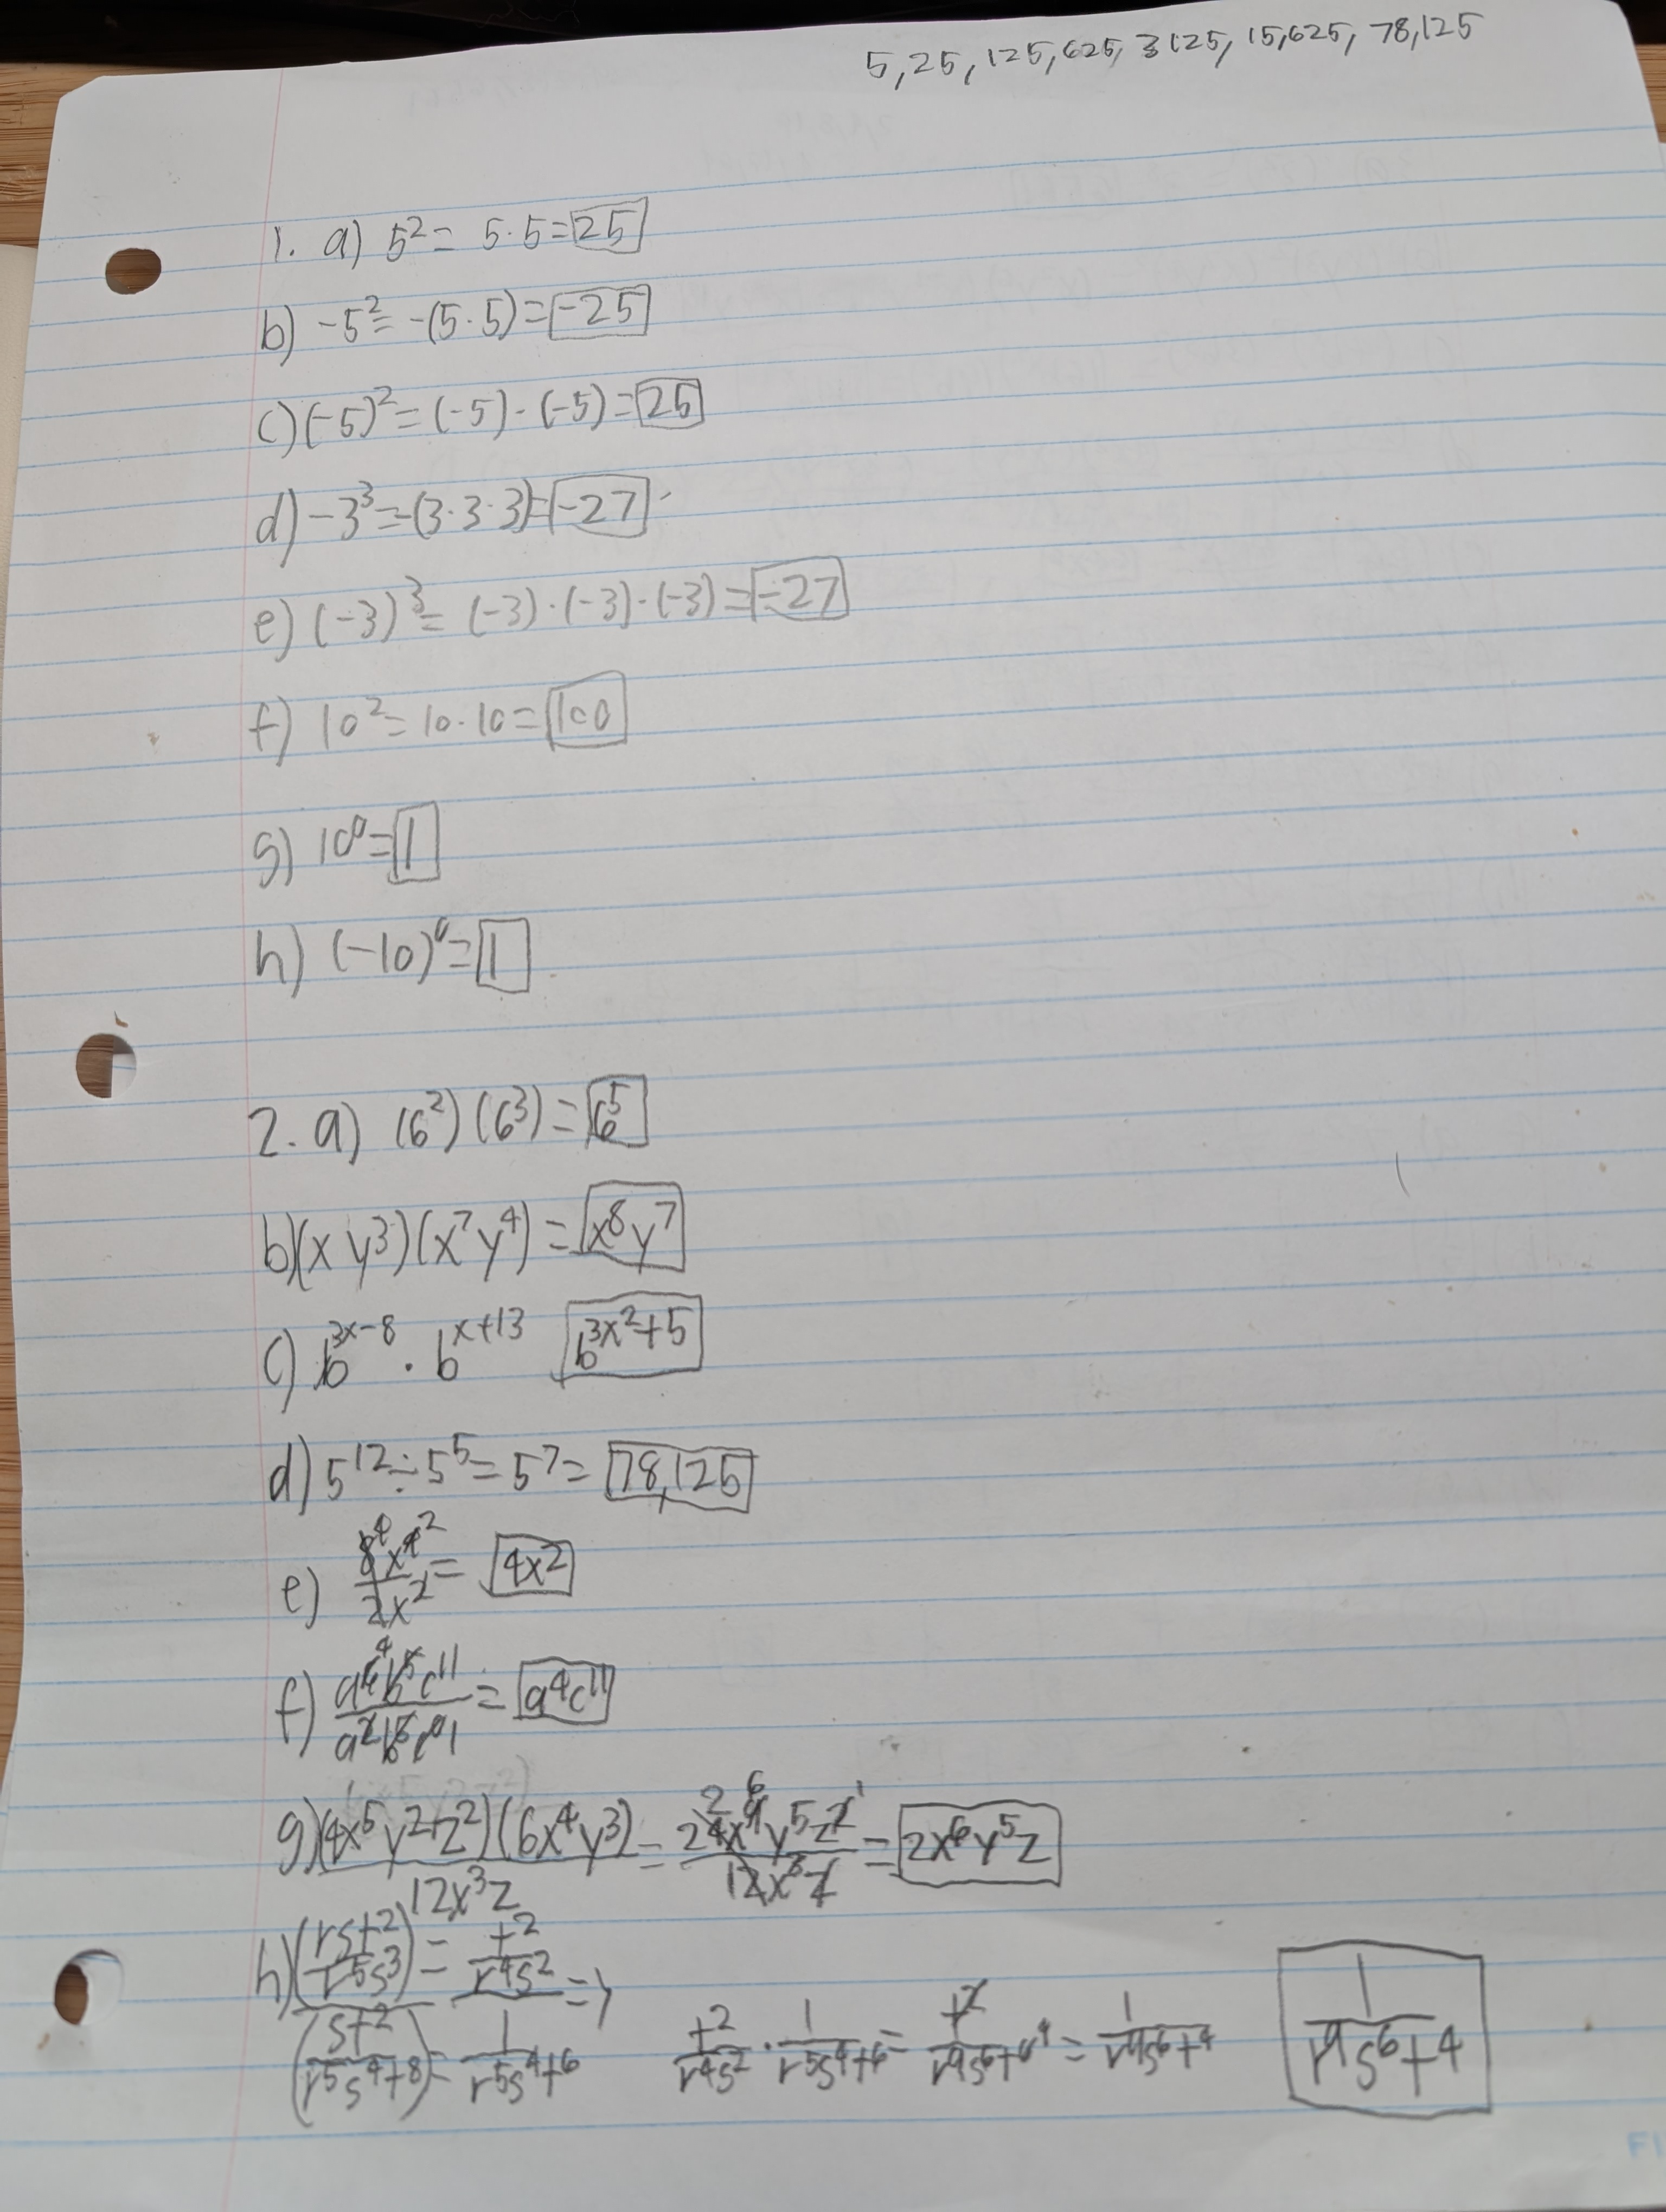 5, 25, 125, 625, 3125, 15,625, 78,125
1. a) 5² = 5·5 = 25
b) -5² = -(5·5) = -25
c) (-5)² = (-5)·(-5) = 25
d) -3³ = -(3·3·3) = -27
e) (-3)³ = (-3)·(-3)·(-3) = -27
f) 10² = 10·10 = 100
g) 10⁰ = 1
h) (-10)⁰ = 1
2. a) (6²)(6³) = 6⁵
b) (xy³)(x⁷y⁴) = x⁸y⁷
c) b^(3x-8) · b^(x+13) b^(3x²+5)
d) 5¹² ÷ 5⁵ = 5⁷ = 78,125
e) 8x⁴/2x² = 4x²
f) a⁶b⁵c¹¹/a²b⁵c⁰ = a⁴c¹¹
g) (4x⁵y²z²)(6x⁴y³)/12x³z = 24x⁹y⁵z²/12x³z = 2x⁶y⁵z
h) (rst²/r⁵s³) = t²/r⁴s² =>
(st²/r⁵s⁴t⁸) = 1/r⁵s⁴t⁶ t²/r⁴s² · 1/r⁵s⁴t⁶ = t²/r⁹s⁶t⁶ = 1/r⁹s⁶t⁴ 1/r⁹s⁶t⁴